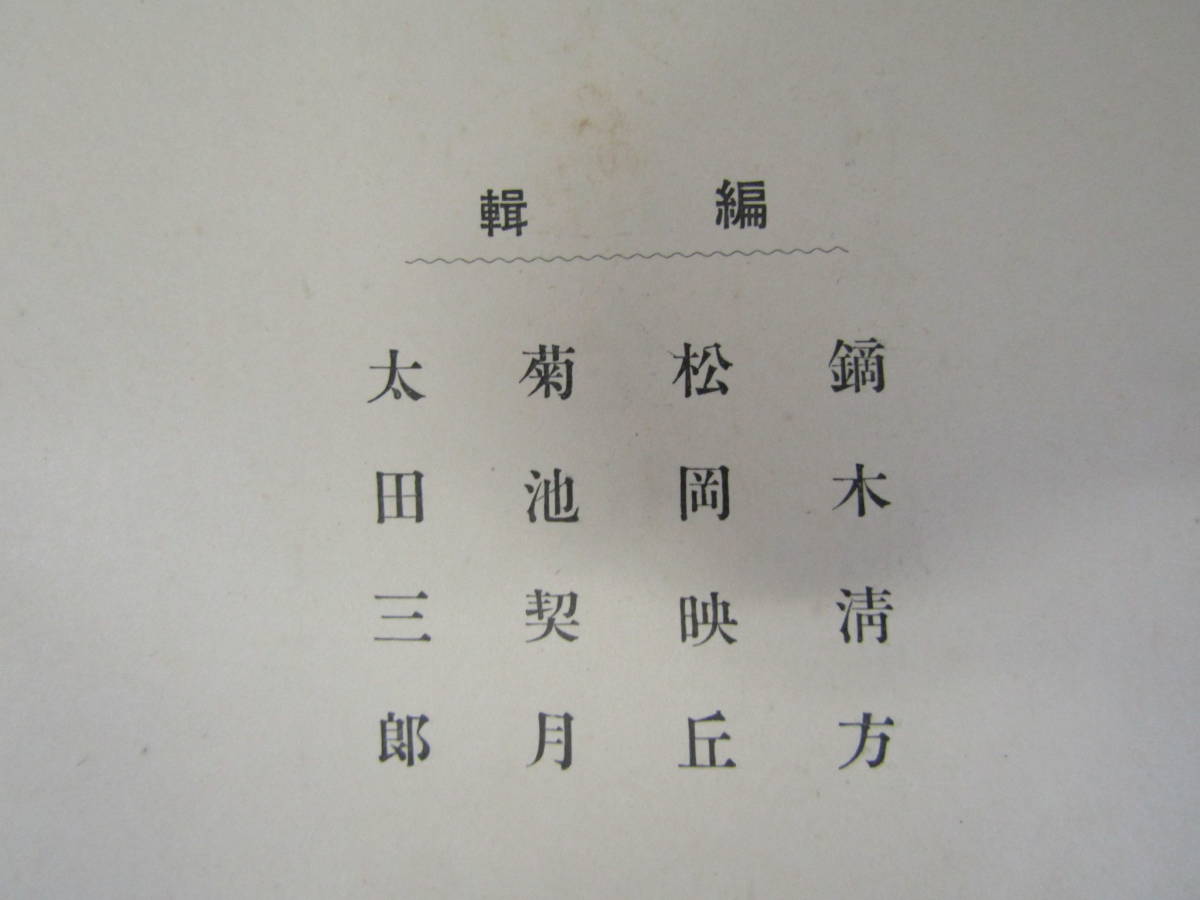 編輯
鏑木淸方
松岡映丘
菊池契月
太田三郎